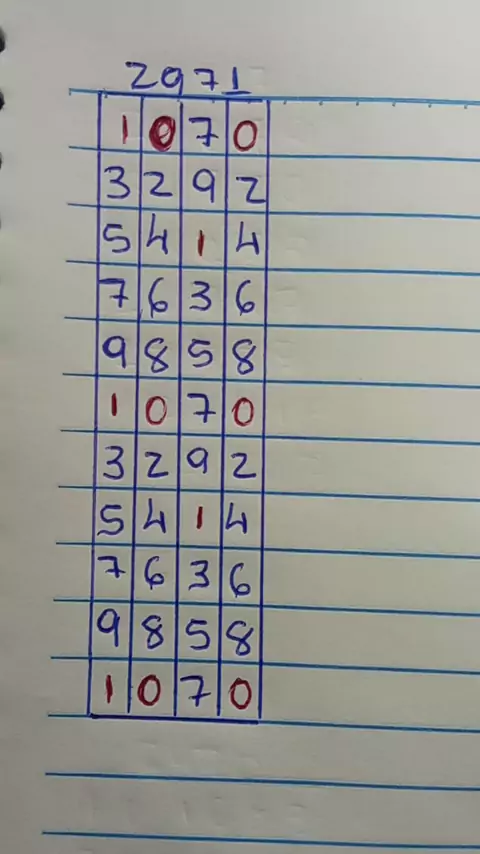 2971
1 0 7 0
3 2 9 2
5 4 1 4
7 6 3 6
9 8 5 8
1 0 7 0
3 2 9 2
5 4 1 4
7 6 3 6
9 8 5 8
1 0 7 0